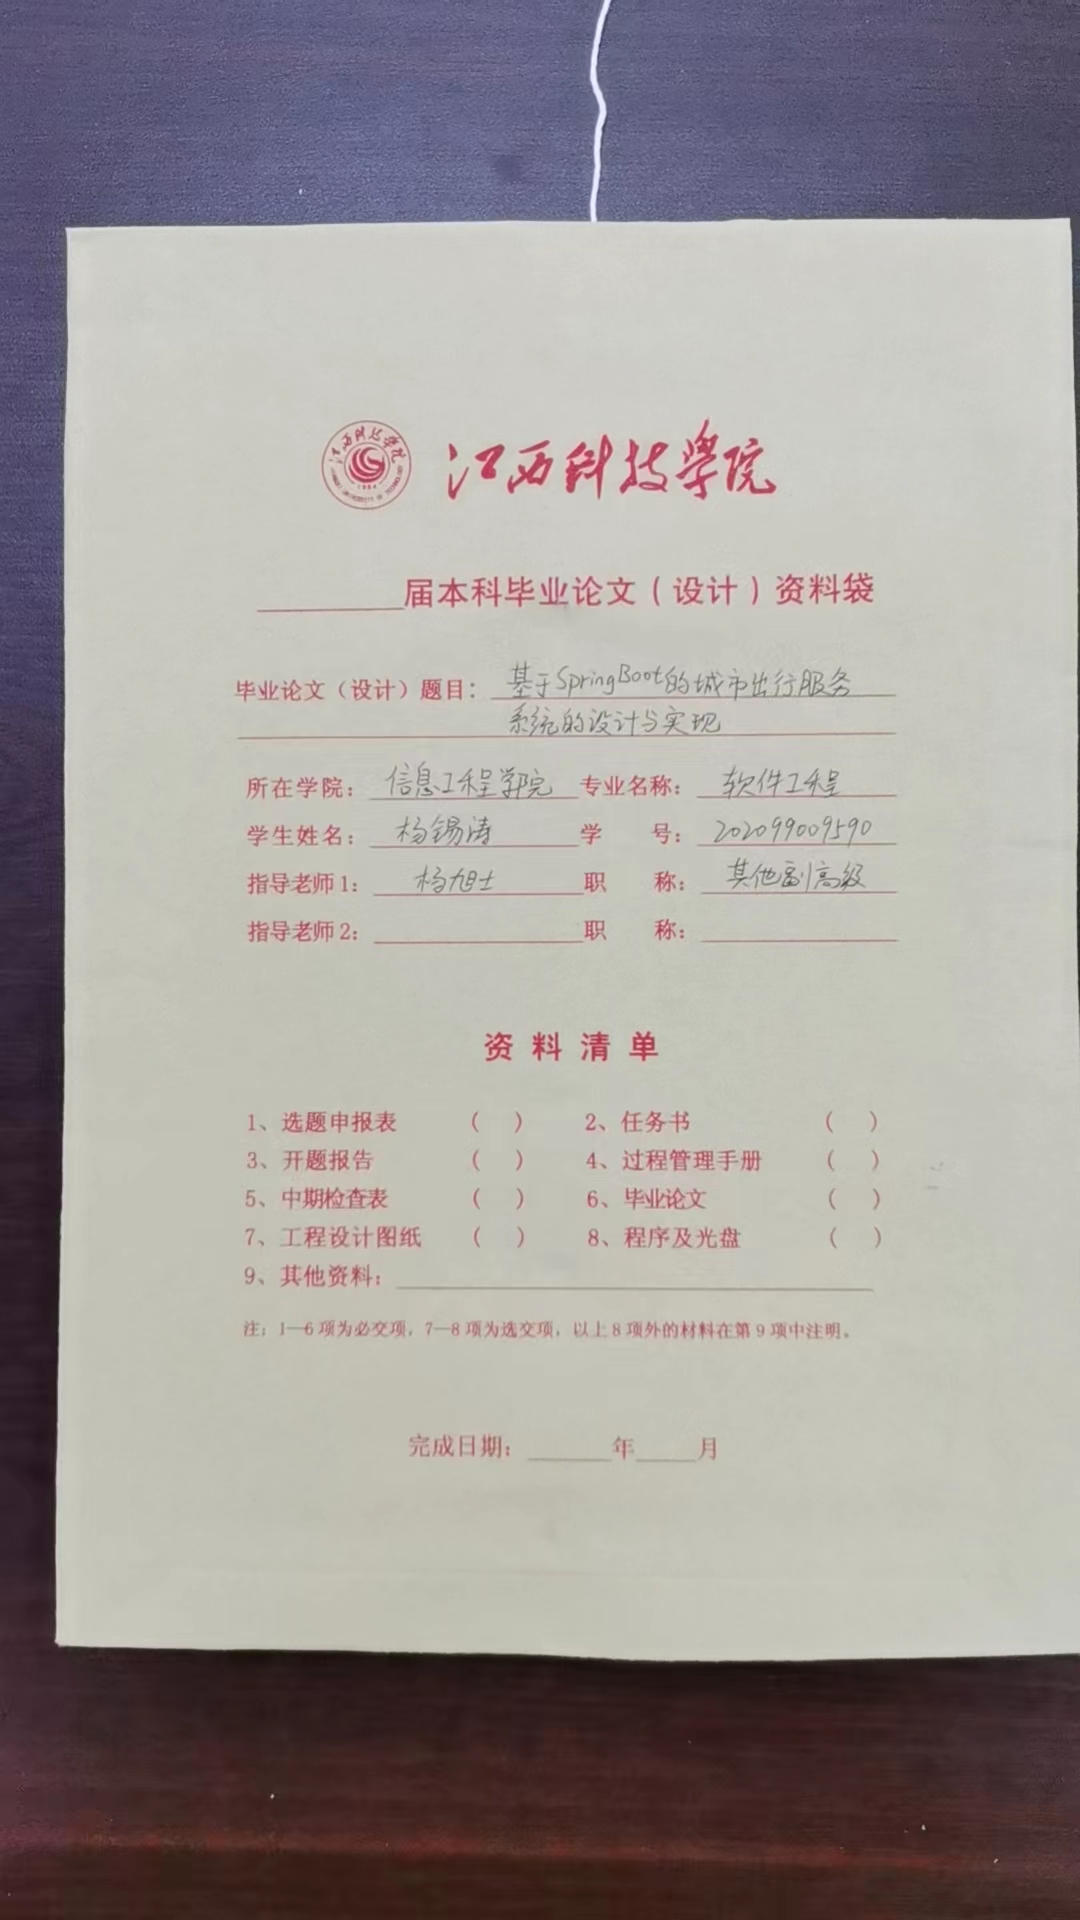 江西科技学院
江西科技學院
届本科毕业论文（设计）资料袋
毕业论文（设计）题目：基于SpringBoot的城市出行服务
系统的设计与实现
所在学院：信息工程学院 专业名称：软件工程
学生姓名：杨锡涛 学 号：202099009590
指导老师1：杨旭士 职 称：其他副高级
指导老师2： 职 称：
资料清单
1、选题申报表 （ ） 2、任务书 （ ）
3、开题报告 （ ） 4、过程管理手册 （ ）
5、中期检查表 （ ） 6、毕业论文 （ ）
7、工程设计图纸 （ ） 8、程序及光盘 （ ）
9、其他资料：
注：1—6项为必交项，7—8项为选交项，以上8项外的材料在第9项中注明。
完成日期： 年 月